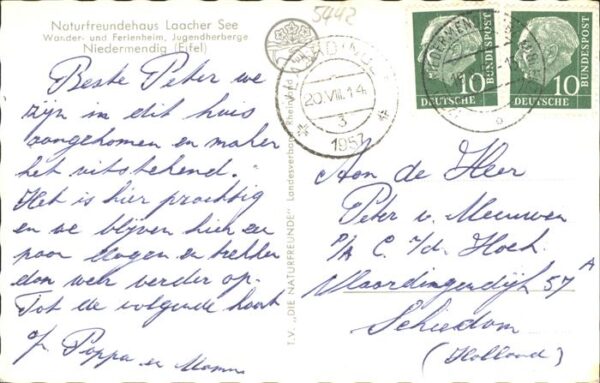 Naturfreundehaus Laacher See
Wander- und Ferienheim, Jugendherberge
Niedermendig (Eifel)
5442
Beste Peter we
zijn in dit huis
aangekomen en maken
het uitstekend.
Het is hier prachtig
en we blijven hier een
paar dagen en trekken
dan weer verder op.
Tot de volgende kaart
Pappa en Mama
T.V. „DIE NATURFREUNDE" Landesverband Rheinland
20.VIII.14
3
1957
10
DEUTSCHE
BUNDESPOST
10
DEUTSCHE
BUNDESPOST
Aan de Heer
Peter v. Meeuwen
P/A C. v/d. Hoek
Vlaardingerdijk 57 A
Schiedam
(Holland)